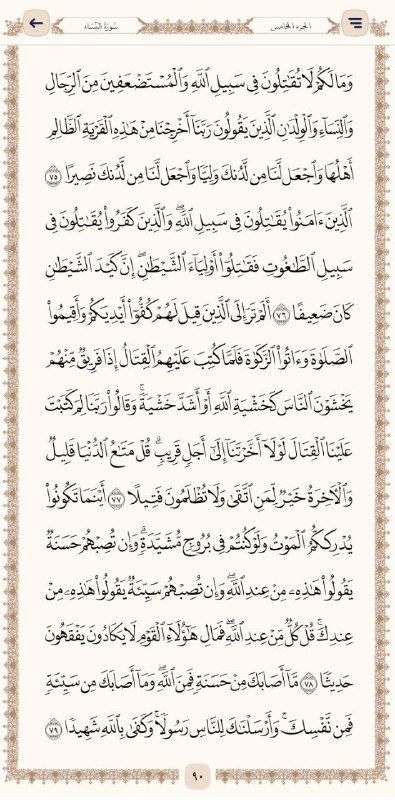 سُورَةُ النِّسَاء
الجزء الخامس
وَمَا لَكُمْ لَا تُقَٰتِلُونَ فِي سَبِيلِ ٱللَّهِ وَٱلْمُسْتَضْعَفِينَ مِنَ ٱلرِّجَالِ
وَٱلنِّسَآءِ وَٱلْوِلْدَٰنِ ٱلَّذِينَ يَقُولُونَ رَبَّنَآ أَخْرِجْنَا مِنْ هَٰذِهِ ٱلْقَرْيَةِ ٱلظَّالِمِ
أَهْلُهَا وَٱجْعَل لَّنَا مِن لَّدُنكَ وَلِيًّا وَٱجْعَل لَّنَا مِن لَّدُنكَ نَصِيرًا ٧٥
ٱلَّذِينَ ءَامَنُوا۟ يُقَٰتِلُونَ فِي سَبِيلِ ٱللَّهِۖ وَٱلَّذِينَ كَفَرُوا۟ يُقَٰتِلُونَ فِي
سَبِيلِ ٱلطَّٰغُوتِ فَقَٰتِلُوٓا۟ أَوْلِيَآءَ ٱلشَّيْطَٰنِۖ إِنَّ كَيْدَ ٱلشَّيْطَٰنِ
كَانَ ضَعِيفًا ٧٦ أَلَمْ تَرَ إِلَى ٱلَّذِينَ قِيلَ لَهُمْ كُفُّوٓا۟ أَيْدِيَكُمْ وَأَقِيمُوا۟
ٱلصَّلَوٰةَ وَءَاتُوا۟ ٱلزَّكَوٰةَ فَلَمَّا كُتِبَ عَلَيْهِمُ ٱلْقِتَالُ إِذَا فَرِيقٌ مِّنْهُمْ
يَخْشَوْنَ ٱلنَّاسَ كَخَشْيَةِ ٱللَّهِ أَوْ أَشَدَّ خَشْيَةًۚ وَقَالُوا۟ رَبَّنَا لِمَ كَتَبْتَ
عَلَيْنَا ٱلْقِتَالَ لَوْلَآ أَخَّرْتَنَآ إِلَىٰٓ أَجَلٍ قَرِيبٍۗ قُلْ مَتَٰعُ ٱلدُّنْيَا قَلِيلٌ
وَٱلْءَاخِرَةُ خَيْرٌ لِّمَنِ ٱتَّقَىٰ وَلَا تُظْلَمُونَ فَتِيلًا ٧٧ أَيْنَمَا تَكُونُوا۟
يُدْرِككُّمُ ٱلْمَوْتُ وَلَوْ كُنتُمْ فِي بُرُوجٍ مُّشَيَّدَةٍۗ وَإِن تُصِبْهُمْ حَسَنَةٌ
يَقُولُوا۟ هَٰذِهِۦ مِنْ عِندِ ٱللَّهِۖ وَإِن تُصِبْهُمْ سَيِّئَةٌ يَقُولُوا۟ هَٰذِهِۦ مِنْ
عِندِكَۚ قُلْ كُلٌّ مِّنْ عِندِ ٱللَّهِۖ فَمَالِ هَٰٓؤُلَآءِ ٱلْقَوْمِ لَا يَكَادُونَ يَفْقَهُونَ
حَدِيثًا ٧٨ مَّآ أَصَابَكَ مِنْ حَسَنَةٍ فَمِنَ ٱللَّهِۖ وَمَآ أَصَابَكَ مِن سَيِّئَةٍ
فَمِن نَّفْسِكَۚ وَأَرْسَلْنَٰكَ لِلنَّاسِ رَسُولًاۚ وَكَفَىٰ بِٱللَّهِ شَهِيدًا ٧٩
٩٠